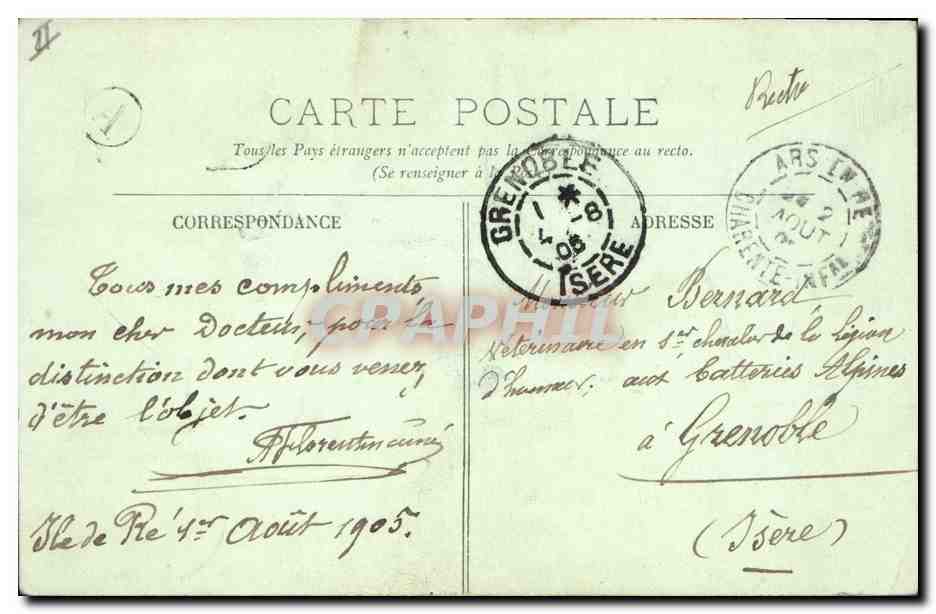 II
A
Recto
CARTE POSTALE
Tous les Pays étrangers n'acceptent pas la Correspondance au recto.
(Se renseigner à la
CORRESPONDANCE
Tous mes compliments,
mon cher Docteur, pour la
distinction dont vous venez
d'être l'objet.
Florentin aîné
Ile de Ré 1er Août 1905.
GRENOBLE
1 - 8
05
ISÈRE
ADRESSE
ARS EN RÉ
2
AOUT
CHARENTE-INFRE
Monsieur Bernard,
Vétérinaire en 1er chevalier de la légion
d'honneur, aux batteries Alpines
à Grenoble
(Isère)
CPAPHIL